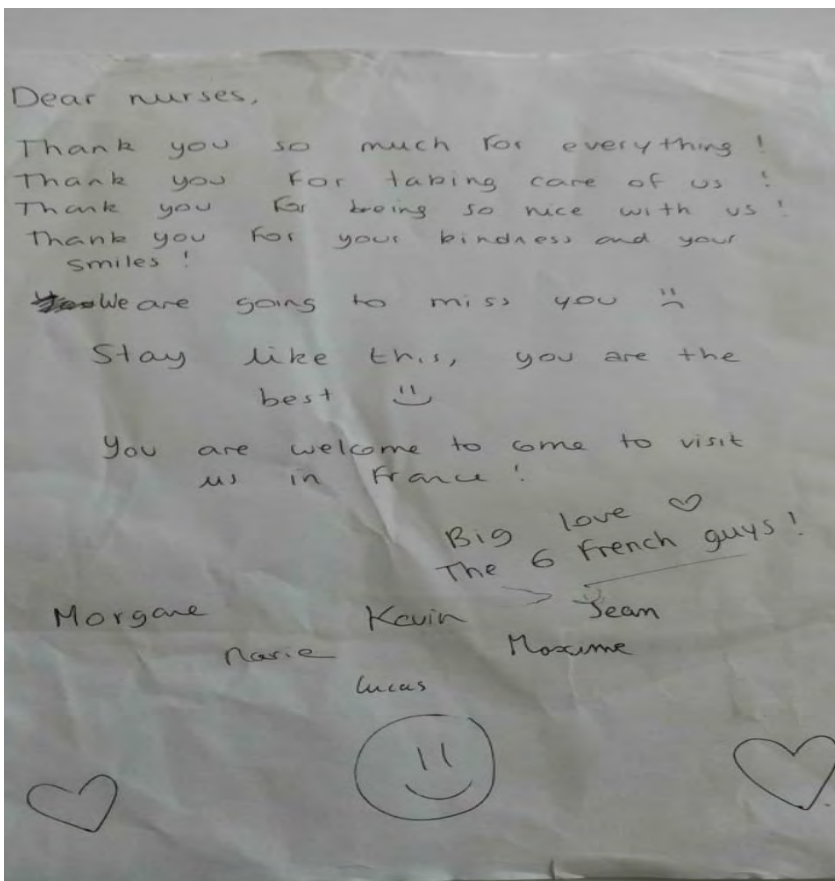 Dear nurses,
Thank you so much for everything !
Thank you For taking care of us !
Thank you For being so nice with us !
Thank you For your kindness and your
smiles !
We are going to miss you
Stay like this, you are the
best
You are welcome to come to visit
us in France !
Big love ♡
The 6 French guys !
Morgane Kevin Jean
Marie Maxime
Lucas